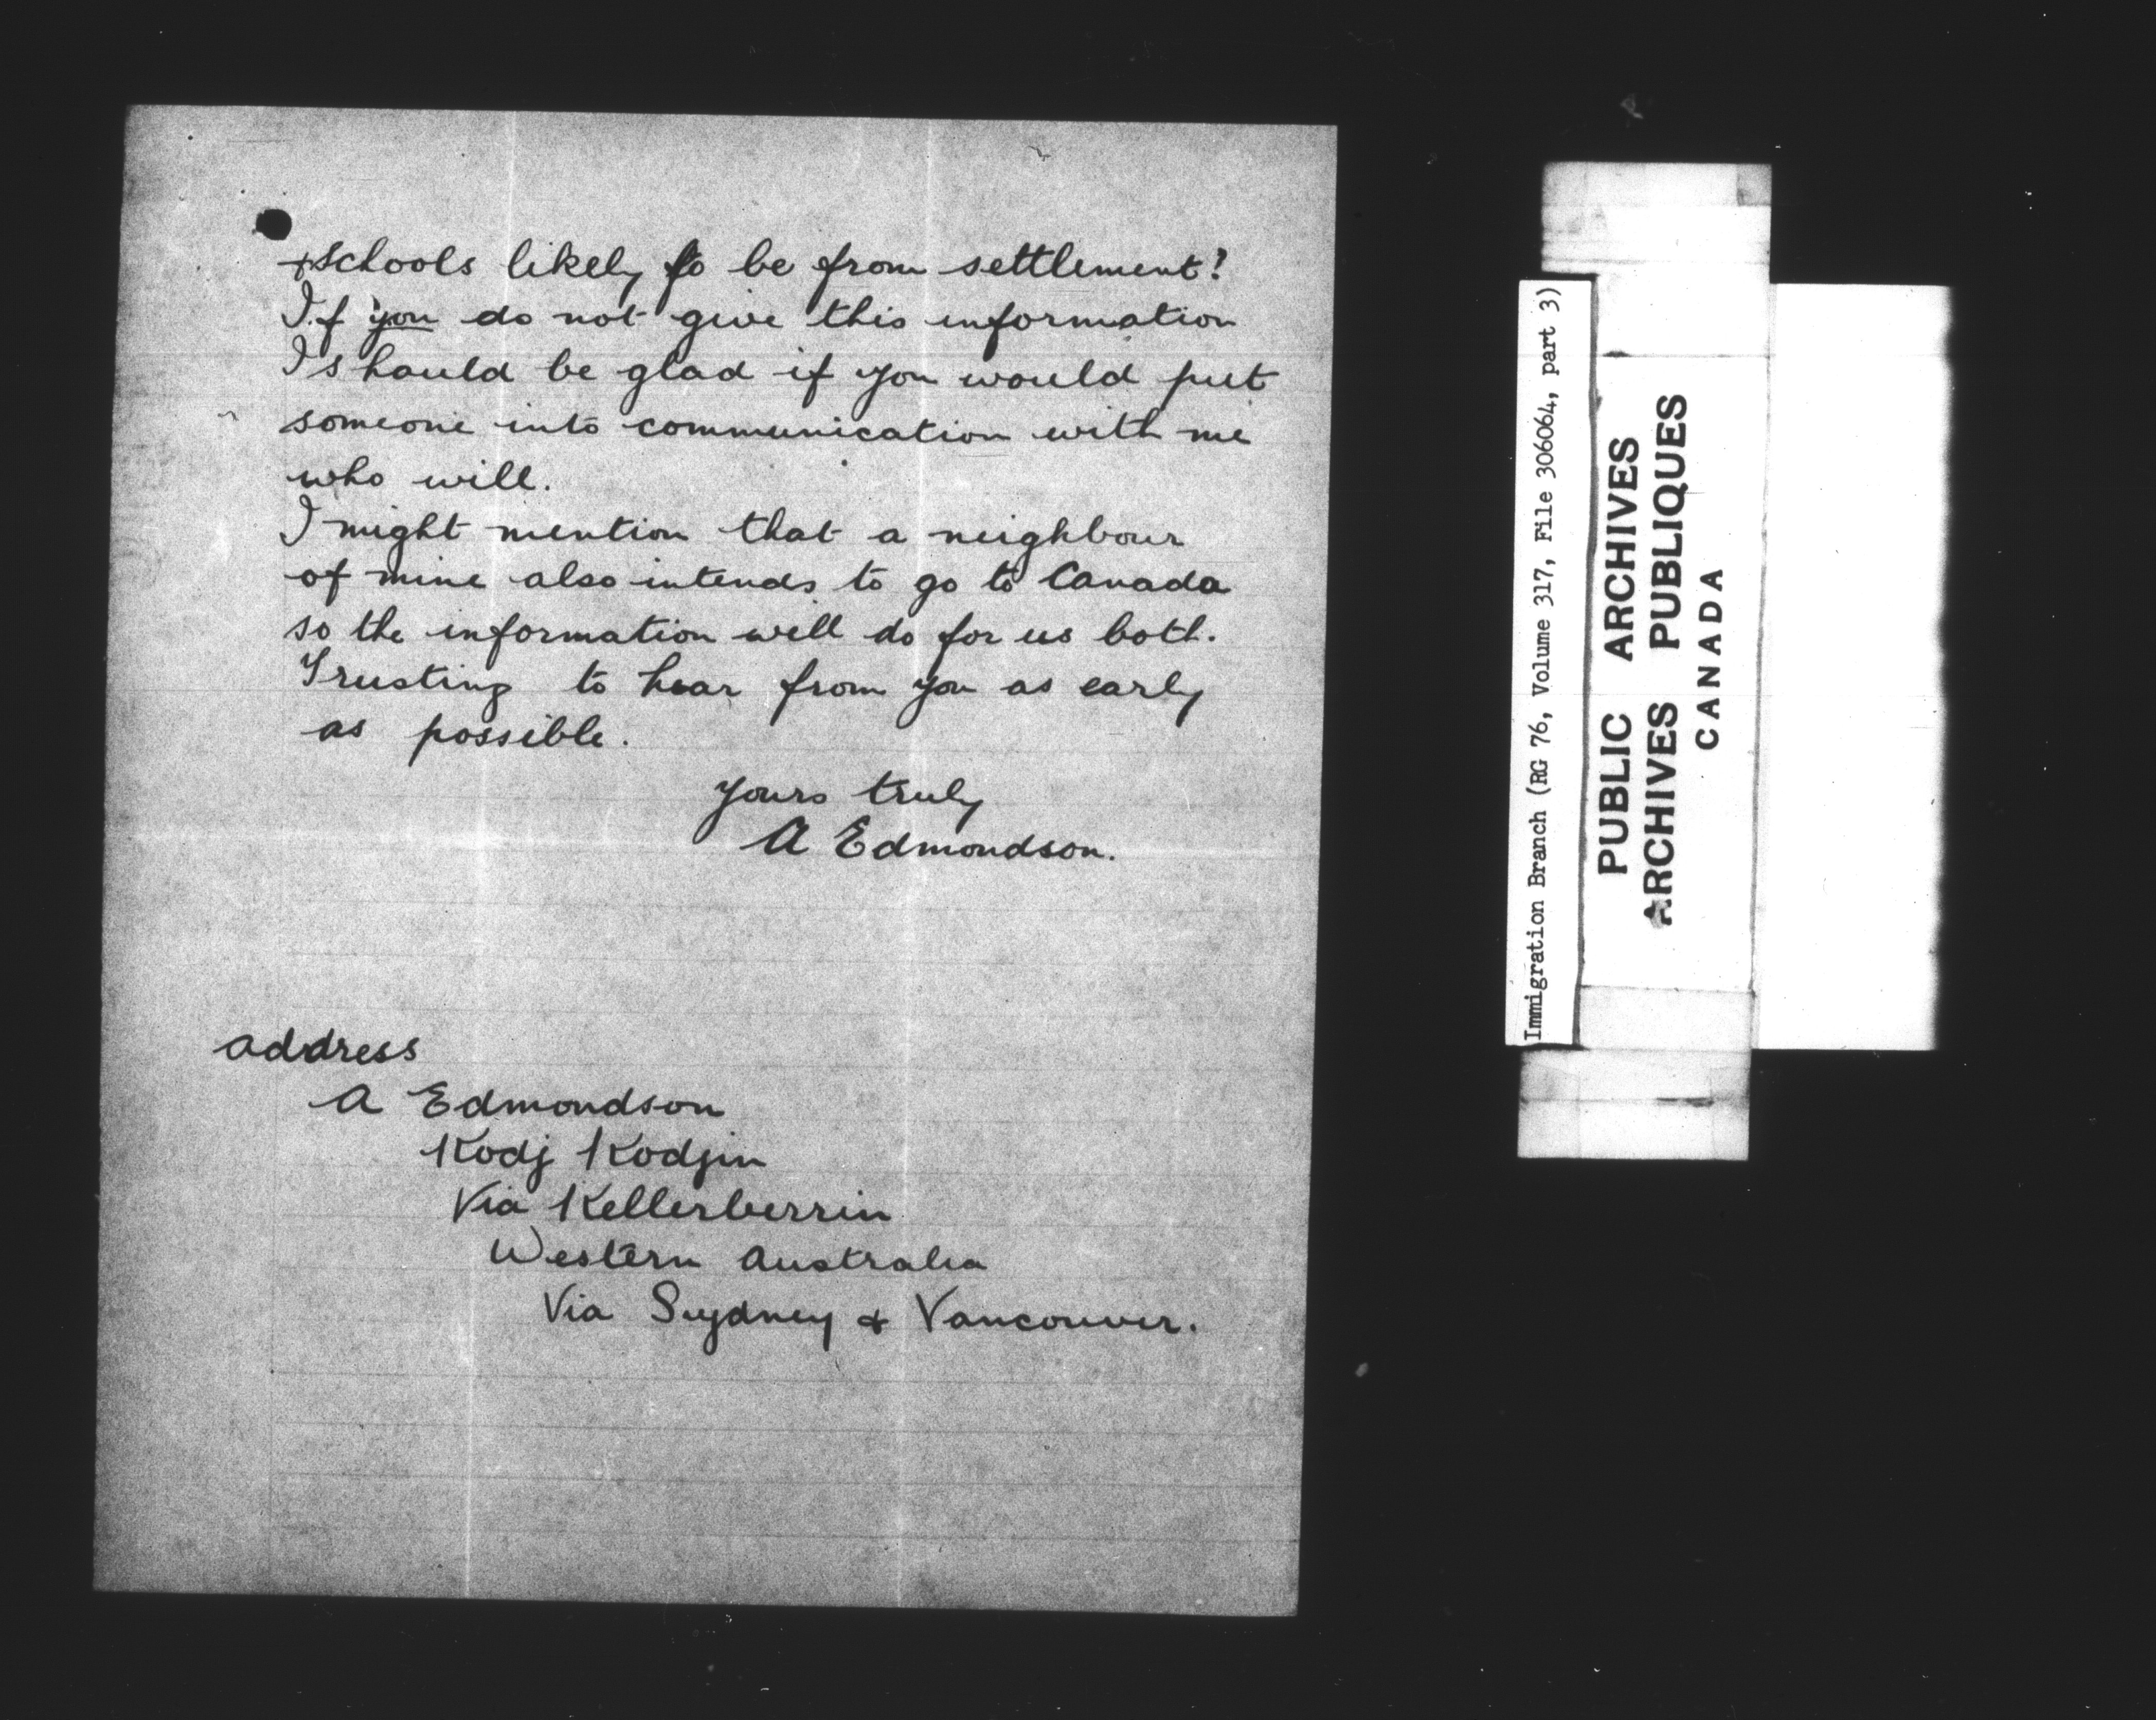 + schools likely to be from settlement?
If you do not give this information
I should be glad if you would put
someone into communication with me
who will.
I might mention that a neighbour
of mine also intends to go to Canada
so the information will do for us both.
Trusting to hear from you as early
as possible.
Yours truly
A Edmondson.
address
A Edmondson
Kodj Kodjin
Via Kellerberrin
Western Australia
Via Sydney + Vancouver.
Immigration Branch (RG 76, Volume 317, File 306064, part 3)
PUBLIC ARCHIVES
ARCHIVES PUBLIQUES
CANADA